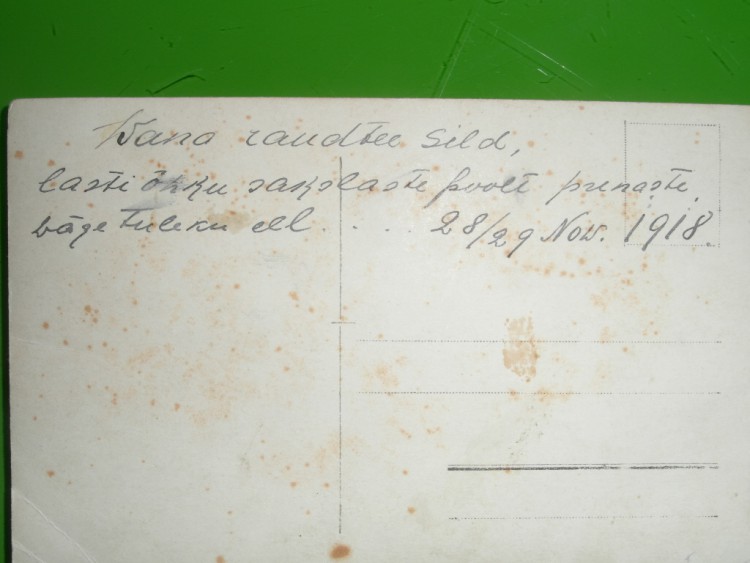 Wana raudtee sild,
lasti õhku sakslaste poolt punaste
wäge tuleku eel . . . . 28/29 Now. 1918.